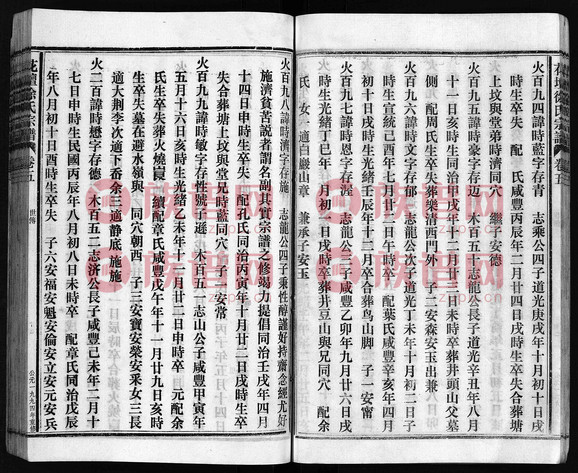 火百九四諱時清字存青 志乘公四子道光庚戌年十月初十日
時生卒失 配 氏咸豐丙辰年二月廿四日戌時生卒失合葬塘
上坟與堂弟時濟同穴 繼子安德
火百九五諱時豪字存迈 木百五十志龍公長子道光辛丑年八月
十一日亥時生同治甲戌年十二月廿三日未時卒葬井頭山父墓
側 配周氏生卒失葬樂清西門外 子二安森安玉出兼
火百九六諱時文字存郁 志龍公次子道光丁未年十月初二日子
時生宣統己酉年七月廿八日戌時卒 配葉氏咸豐辛亥年八月
初十日戌時生光緒壬辰年十二月卒合葬鸟山脚 子一安甯
火百九七諱時恩字存渥 志龍公三子咸豐乙卯年九月廿六日戌
時生光緒丁巳年 月初一日戌時卒葬井豆山與兄同穴 配余
氏 女一適白巖山章 兼承子安玉
火百九八諱時濟字存施 志龍公四子秉性醇謹好持齋念經尤好
施濟貧苦説者謂名副其實宗譜之修竭力提倡同治壬戌年四月
十四日申時生卒失 配孔氏同治丙寅年十月廿二日戌時生卒
失合葬塘上坟與堂兄時藍同穴 子一安常
火百九九諱時敏字存性號子遜 木百五一志山公子咸豐甲寅年
五月十六日亥時生光緒乙未年十一月廿二日申時卒 元配余
氏生卒失葬火燒 續配章氏咸豐戊午年十一月廿九日寅時
生卒失墓在避水嶺與 同穴朝西 子三安寶安榮安釆女三長
適大荆李次適下番余三適静底 施施
火二百諱時懋字存德 木百五二志济公長子咸豐己未年二月十
七日申時生民國丙辰年八月初八日未時卒 配章氏同治戊辰
年八月初十日酉時生卒失 子六安福安魁安倫安立安元安兵
花壇徐氏宗譜 卷五
世傳
公元一九九四年重修